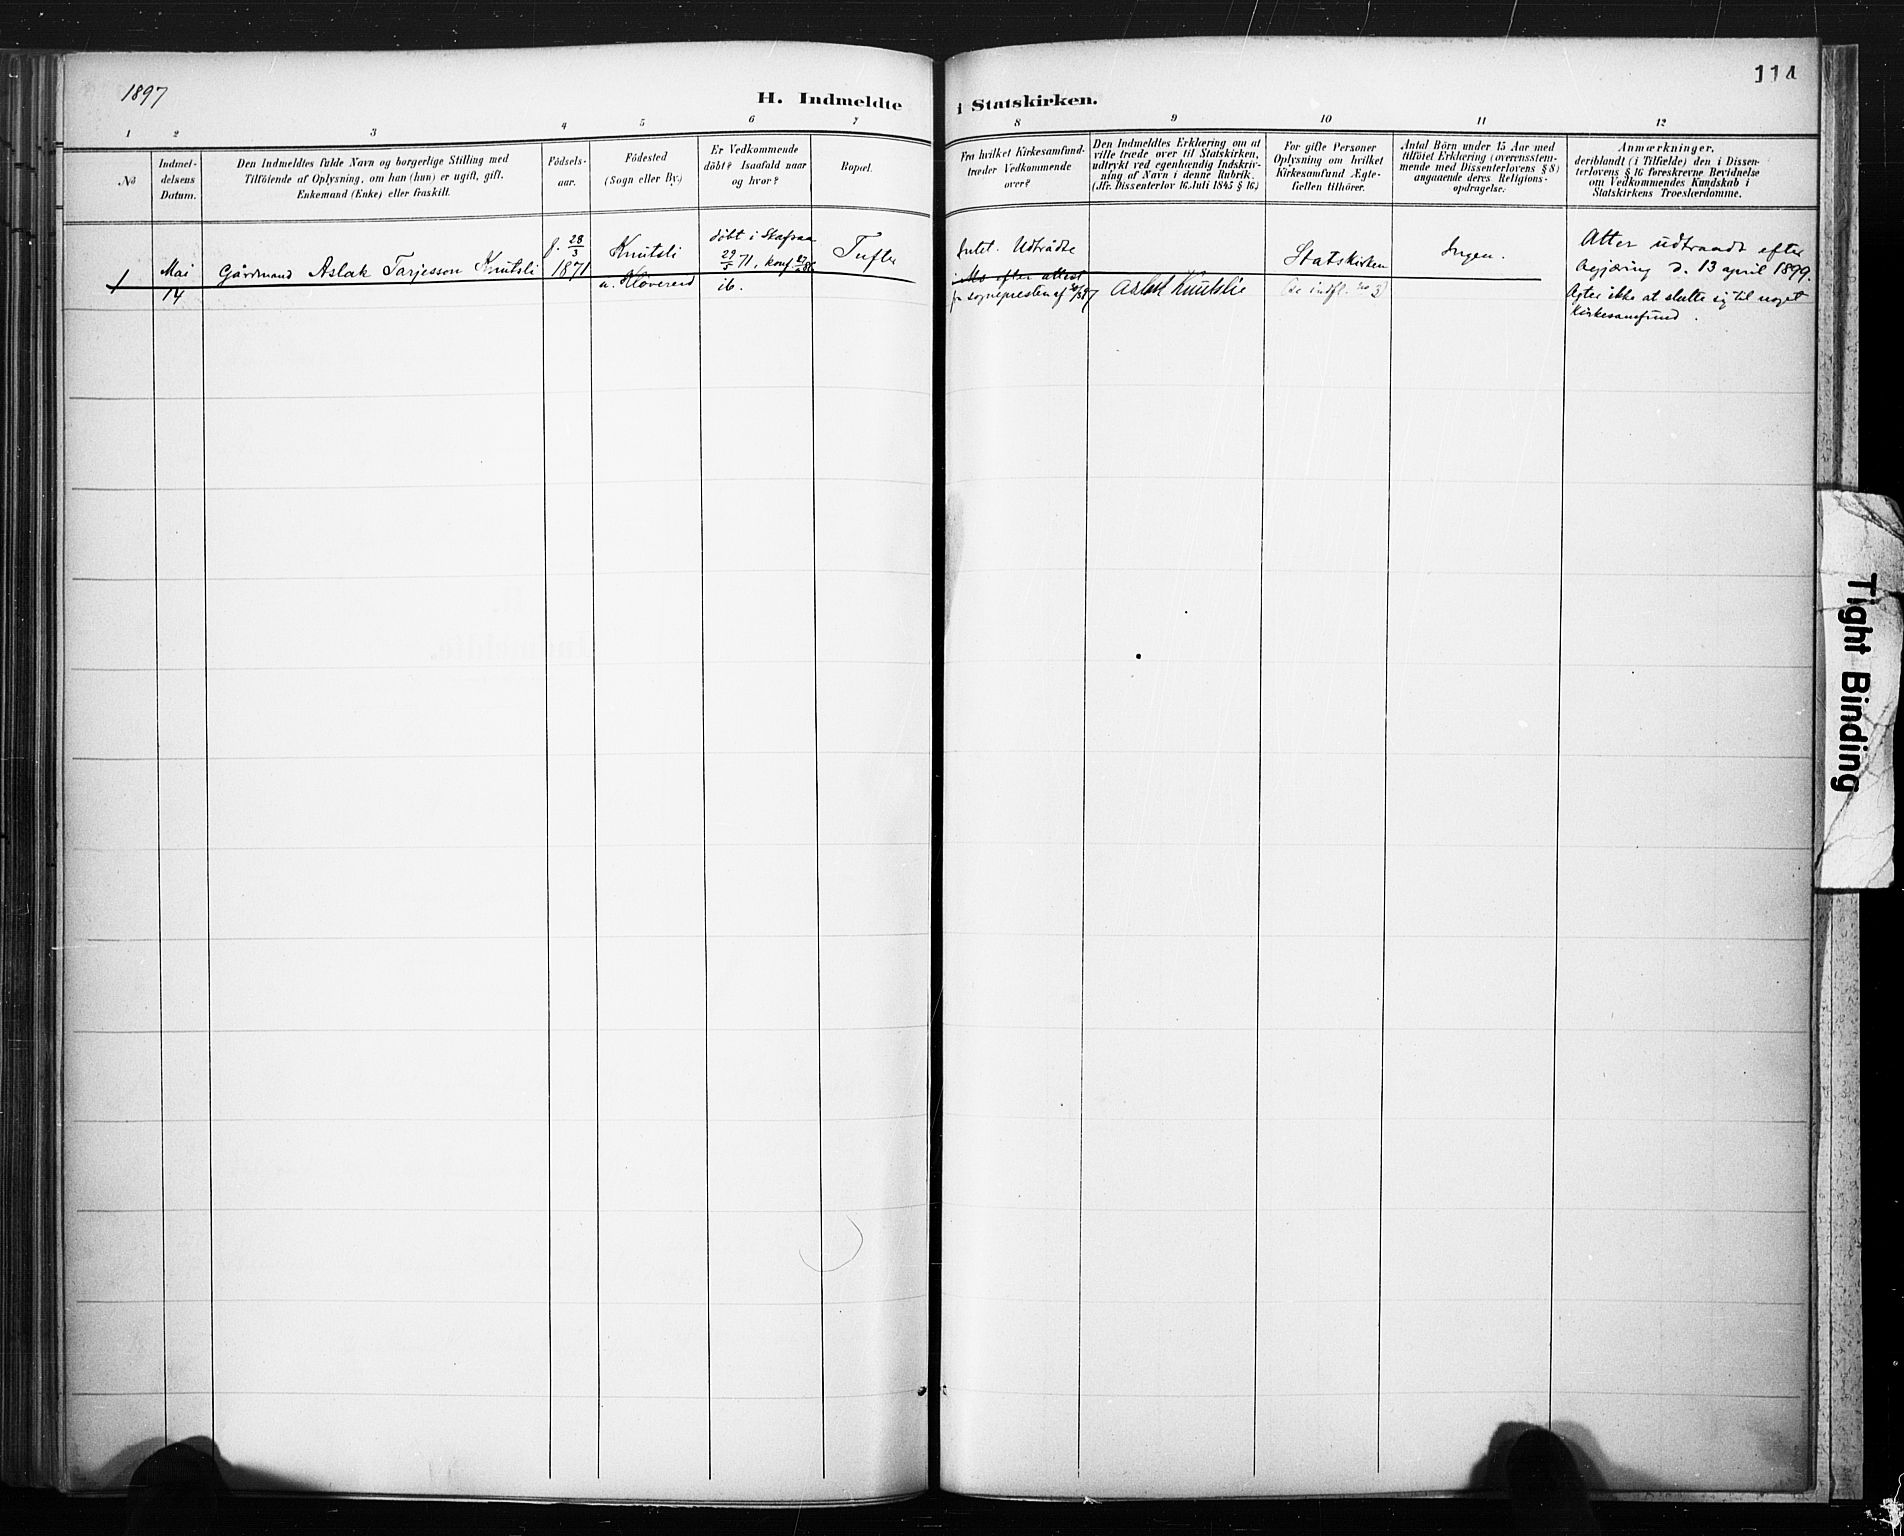 1897
114
H. Indmeldte i Statskirken.
1 2 3 4 5 6 7 8 9 10 11 12
No
Indmel-
delsens
Datum.
Den Indmeldtes fulde Navn og borgerlige Stilling med
Tilföiende af Oplysning, om han (hun) er ugift, gift,
Enkemand (Enke) eller fraskilt.
Födsels-
aar.
Födested
(Sogn eller By.)
Er Vedkommende
döbt? Isaafald naar
og hvor?
Bopæl.
Fra hvilket Kirkesamfund-
træder Vedkommende
over?
Den Indmeldtes Erklæring om at
ville træde over til Statskirken,
udtrykt ved egenhændig Indskriv-
ning af Navn i denne Rubrik.
(Jfr. Dissenterlov 16. Juli 1845 § 16.)
For gifte Personer
Oplysning om hvilket
Kirkesamfund Ægte-
fællen tilhörer.
Antal Börn under 15 Aar med
tilföiet Erklæring (overensstem-
mende med Dissenterlovens § 8)
angaaende deres Religions-
opdragelse:
Anmærkninger,
deriblandt (i Tilfælde) den i Dissen-
terlovens § 16 foreskrevne Bevidnelse
om Vedkommendes Kundskab i
Statskirkens Troeslærdomme.
1
Mai
14
Gårdmand Aslak Tarjesson Knutsli
f. 28/3
1871
Knutsli
u. Kloverud
döbt i Skafsaa
29/5 71, konf.
ib.
Tufte
Intet. Udtrådte
i Mo efter attest
fr sognepresten af
Aslak Knutslie
Statskirken
(se indfl. no 3)
Ingen.
Atter udtraadt efter
begjæring d. 13 april 1899.
Agter ikke at slutte sig til noget
Kirkesamfund.
Tight Binding